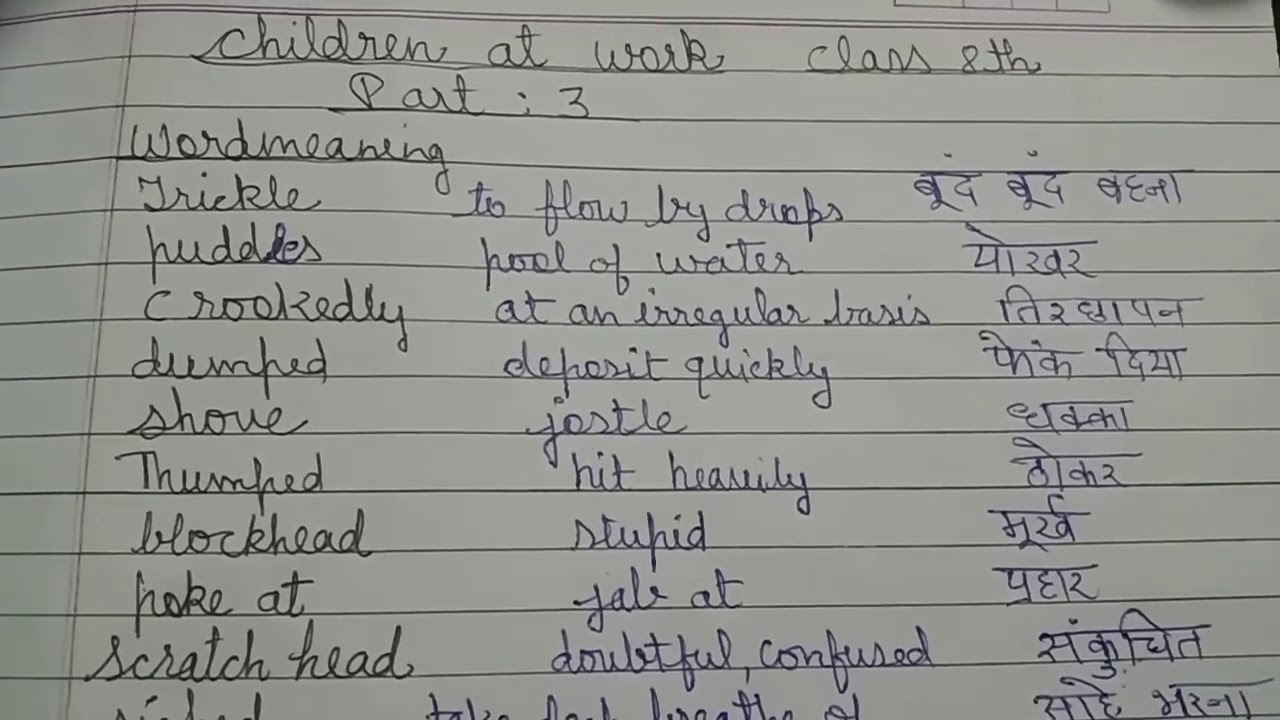 Children at work class 8th
Part : 3
Wordmeaning
Trickle to flow by drops बूंद बूंद बहना
puddles pool of water पोखर
Crookedly at an irregular basis तिरछापन
dumped deposit quickly फेंक दिया
shove jostle धक्का
Thumped hit heavily ठोकर
blockhead stupid मूर्ख
poke at jab at प्रहार
scratch head doubtful, confused संकुचित
sighed take भरना